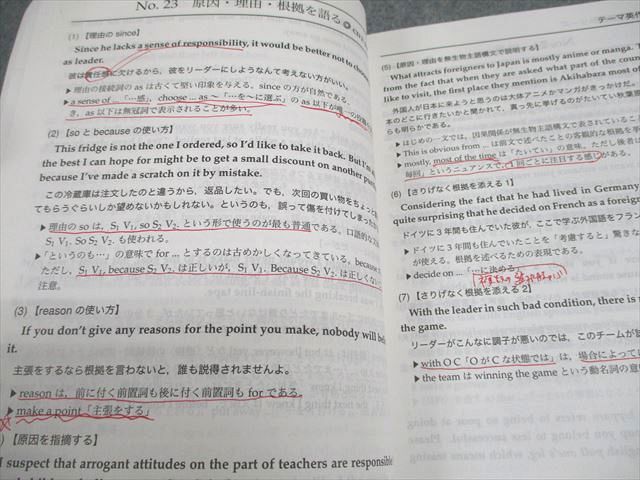 No. 23 原因・理由・根拠を語る
(1)【理由の since】
Since he lacks a sense of responsibility, it would be better not to choose
as leader.
彼は責任感に欠けるから、彼をリーダーにしようなんて考えない方がいい。
▶理由の接続詞の as は古くて堅い印象を与える。since の方が自然である。
▶a sense of ... 「…感」, choose ... as ~「…を～に選ぶ」の as 以下が唯一の
き、as 以下は無冠詞で表示されることが多い。
(2)【so と because の使い方】
This fridge is not the one I ordered, so I'd like to take it back. But I'm
the best I can hope for might be to get a small discount on another
because I've made a scratch on it by mistake.
この冷蔵庫は注文したのと違うから、返品したい。でも、次回の買い物をちょっと
てもらうぐらいしか望めないかもしれない。というのも、誤って傷を付けてしまった
▶理由の so は、S₁ V₁, so S₂ V₂. という形で使うのが最も普通である。口語的な
S₁ V₁. So S₂ V₂. も使われる。
▶「というのも…」の意味で for ... とするのは古めかしくなってきている。because
ただし、S₁ V₁, because S₂ V₂. は正しいが、S₁ V₁. Because S₂ V₂. は正しくない
注意。
(3)【reason の使い方】
If you don't give any reasons for the point you make, nobody will
it.
主張をするなら根拠を言わないと、誰も説得されませんよ。
▶reason は、前に付く前置詞も後に付く前置詞も for である。
▶make a point「主張をする」
)【原因を指摘する】
I suspect that arrogant attitudes on the part of teachers are responsible
テーマ英作
(5)【原因・理由を無生物主語構文で説明する】
What attracts foreigners to Japan is mostly anime or manga.
from the fact that when they are asked what part of the coun
like to visit, the first place they mention is Akihabara most of
外国人が日本に来ようと思うのは大体アニメかマンガがきっかけだ。
本のどこに行きたいかと聞かれて、真っ先に挙げるのがたいてい秋葉原
らも明らかである。
▶はじめの一文では、因果関係が無生物主語構文で表されていること
▶This is obvious from ... は前文で述べたことの客観的な根拠を
▶mostly, most of the time は「たいてい」の意味。ただし後者は
毎回」というニュアンスで、1回ごとに注目する感じがある。
(6)【さりげなく根拠を添える 1】
Considering the fact that he had lived in Germany
quite surprising that he decided on French as a foreign
ドイツに3年間も住んでいた彼が、ここで学ぶ外国語をフラン
▶ドイツに3年間も住んでいたことを「考慮すると」驚きな
が使える。根拠を述べるための表現である。
▶decide on ... 「…に決める」
(7)【さりげなく根拠を添える 2】
With the leader in such bad condition, there is
the game.
リーダーがこんなに調子が悪いのでは、このチームが試
▶with O C「O が C な状態では」は、場合によって
▶the team は winning the game という動名詞の意